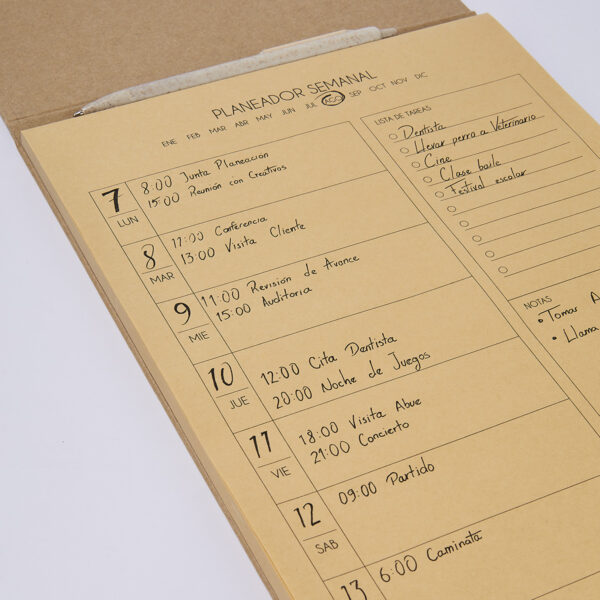 PLANEADOR SEMANAL
ENE FEB MAR ABR MAY JUN JUL AGO SEP OCT NOV DIC
7 LUN
8:00 Junta Planeacion
15:00 Reunión con Creativos
8 MAR
11:00 Conferencia
13:00 Visita Cliente
9 MIE
11:00 Revisión de Avance
15:00 Auditoria
10 JUE
12:00 Cita Dentista
20:00 Noche de Juegos
11 VIE
18:00 Visita Abue
21:00 Concierto
12 SAB
09:00 Partido
13
6:00 Caminata
LISTA DE TAREAS
Dentista
Llevar perro a Veterinario
Cine
Clase baile
Festival escolar
NOTAS
• Tomar A
• Llama